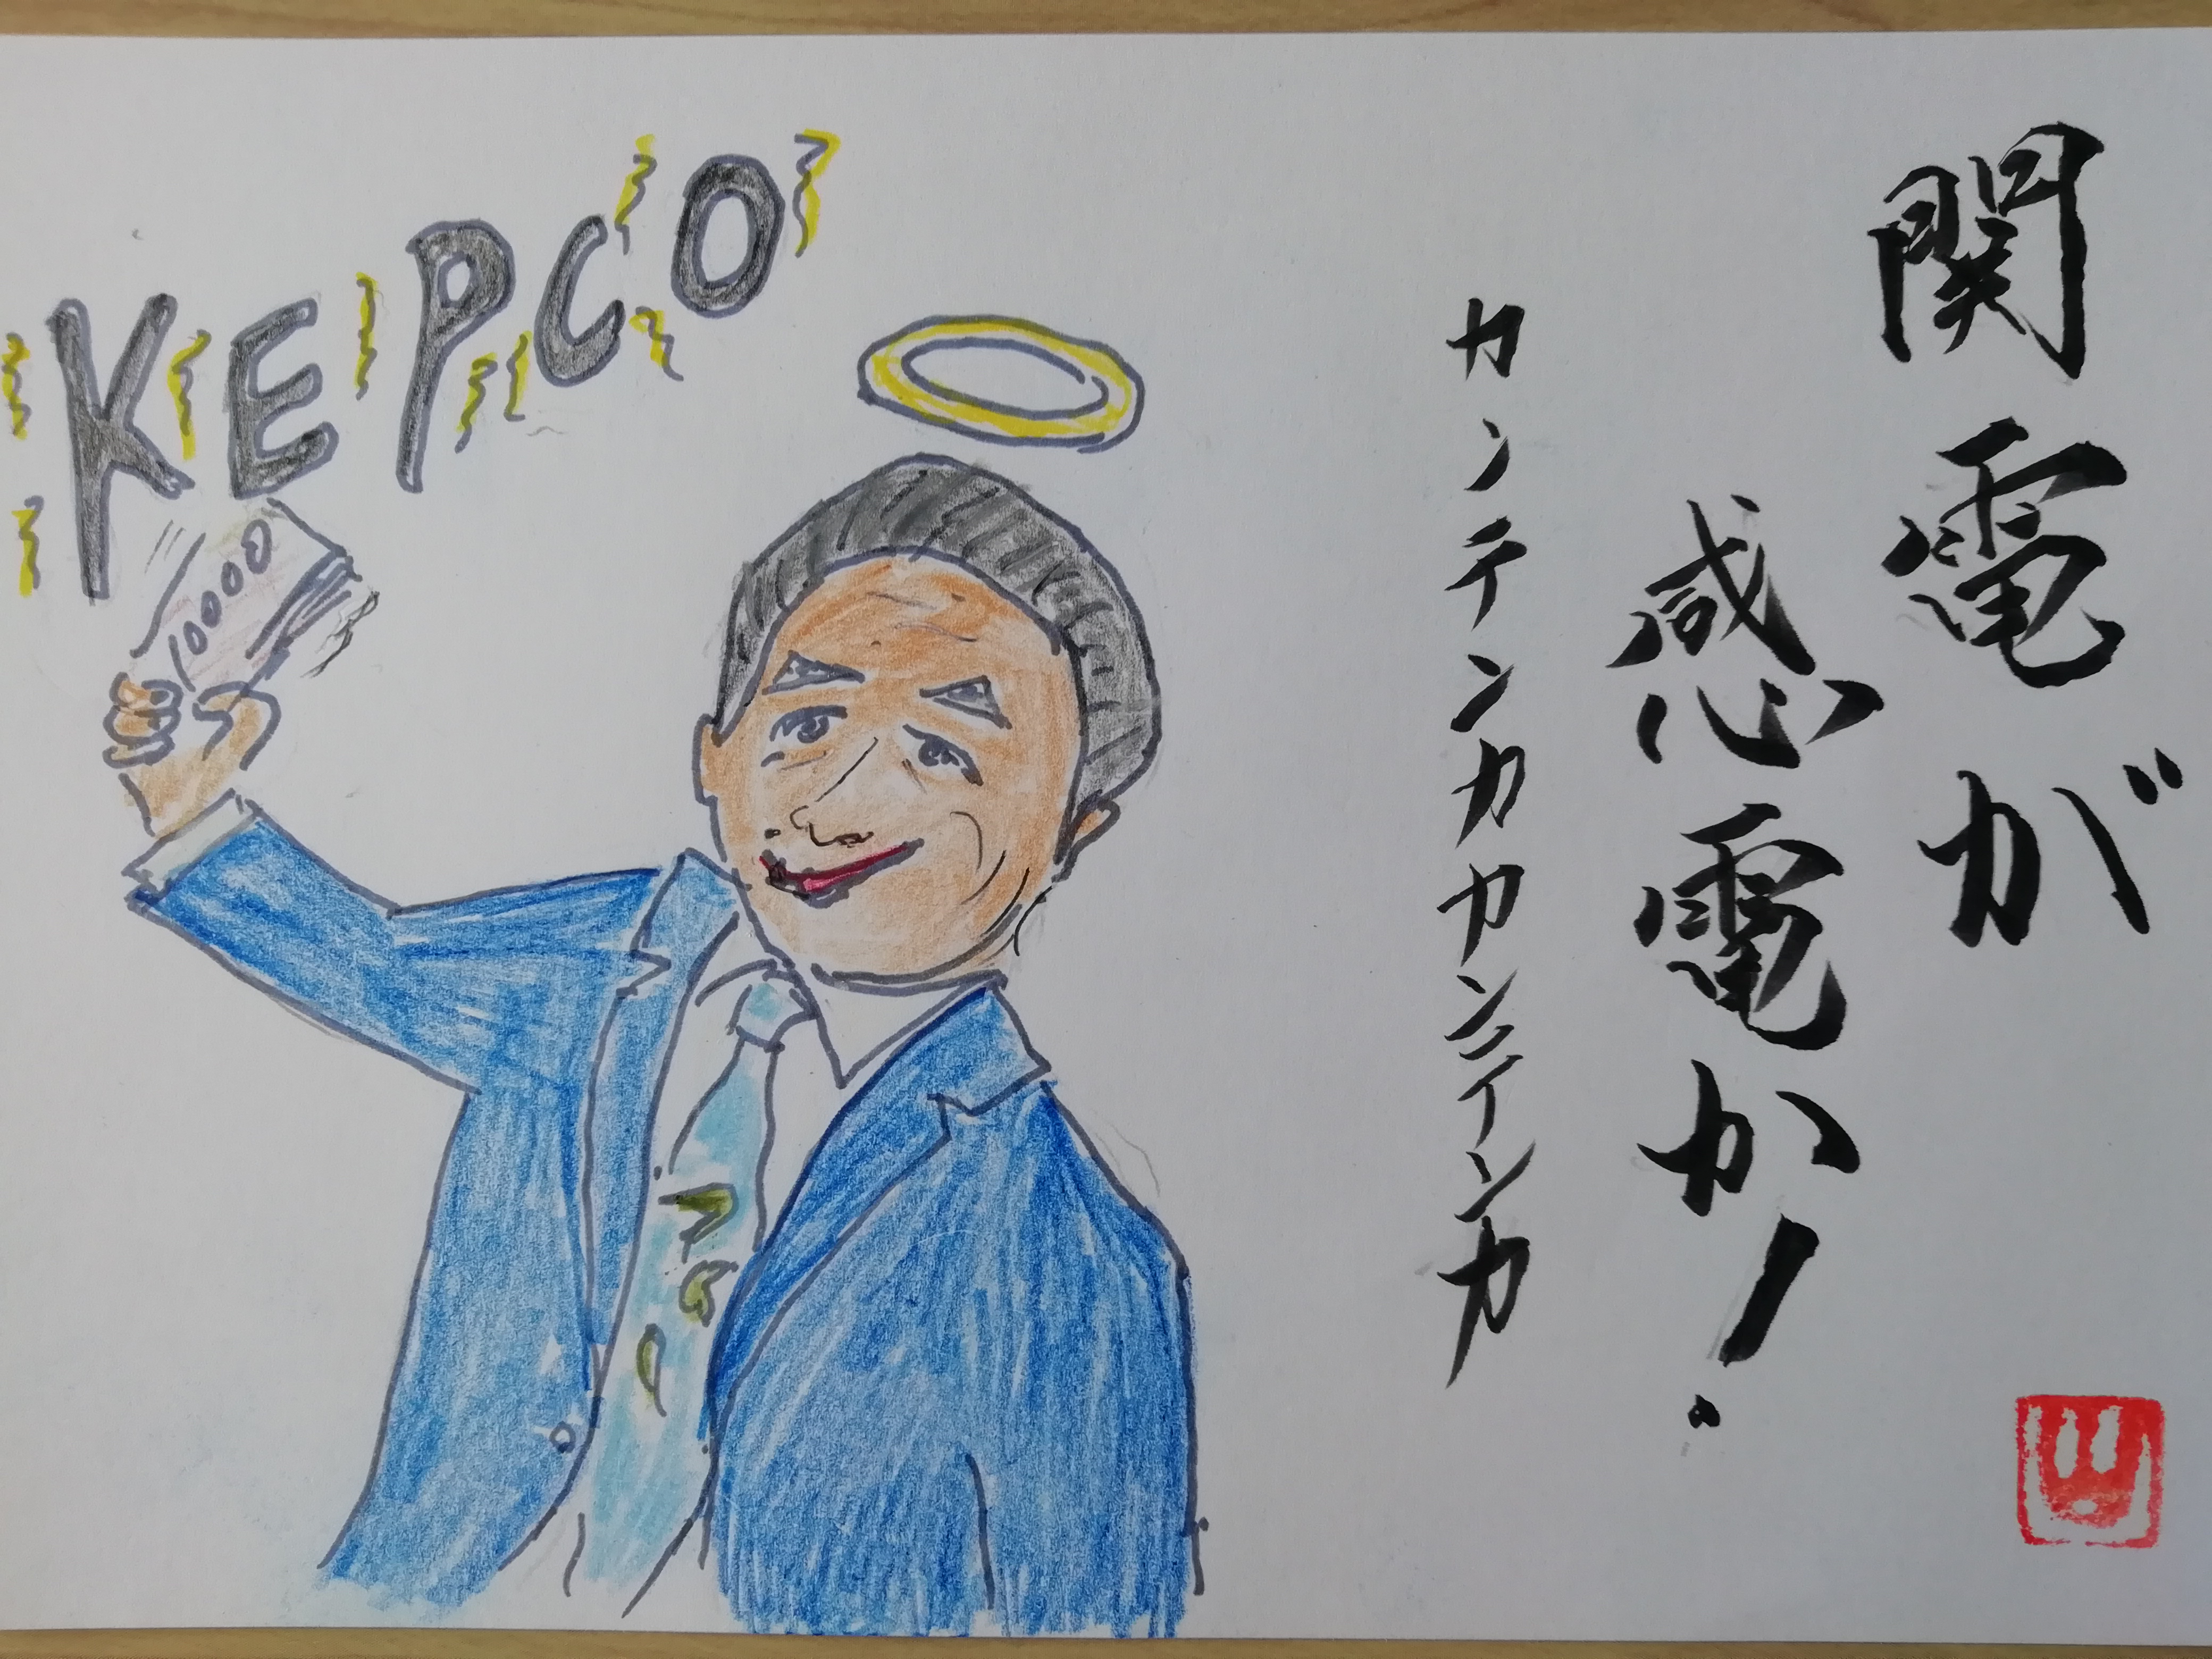 関電が
感電か！
カンテンカカンニインカ
KEPCO
10000